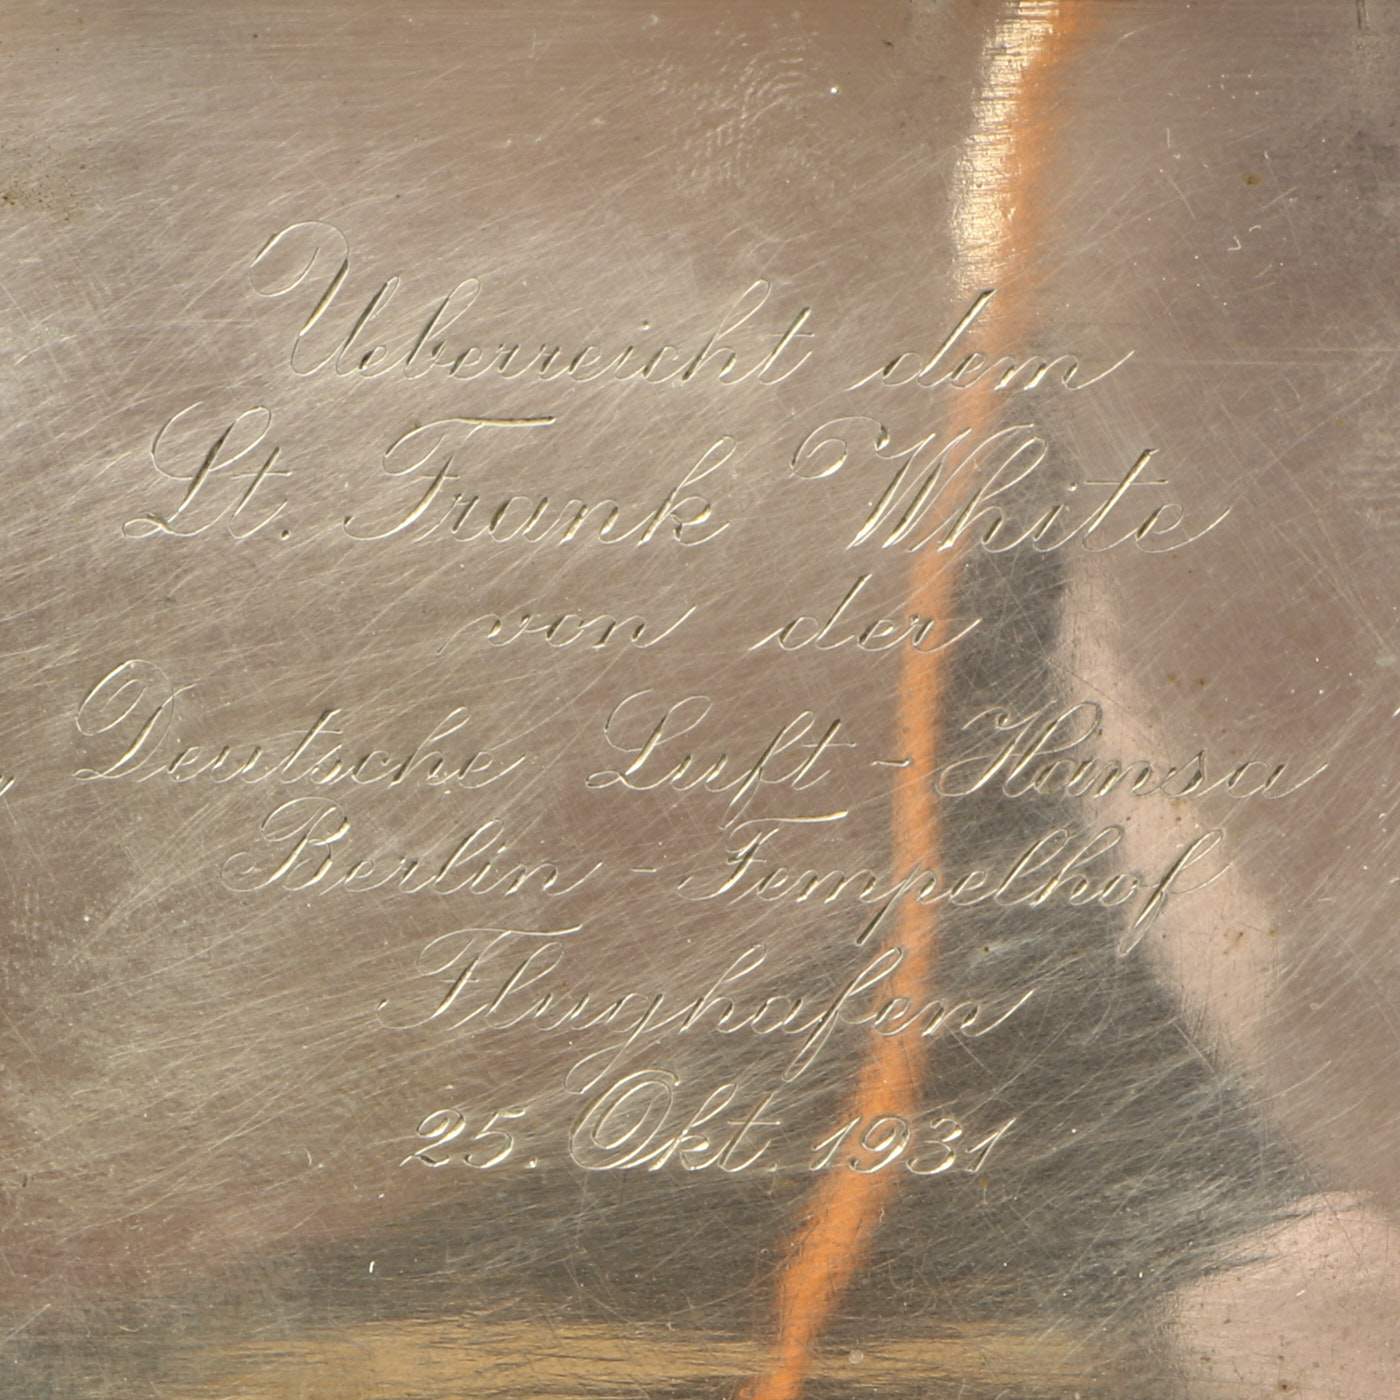 Ueberreicht dem
Lt. Frank White
von der
Deutsche Luft - Hansa
Berlin - Tempelhof
Flughafen
25. Okt. 1931